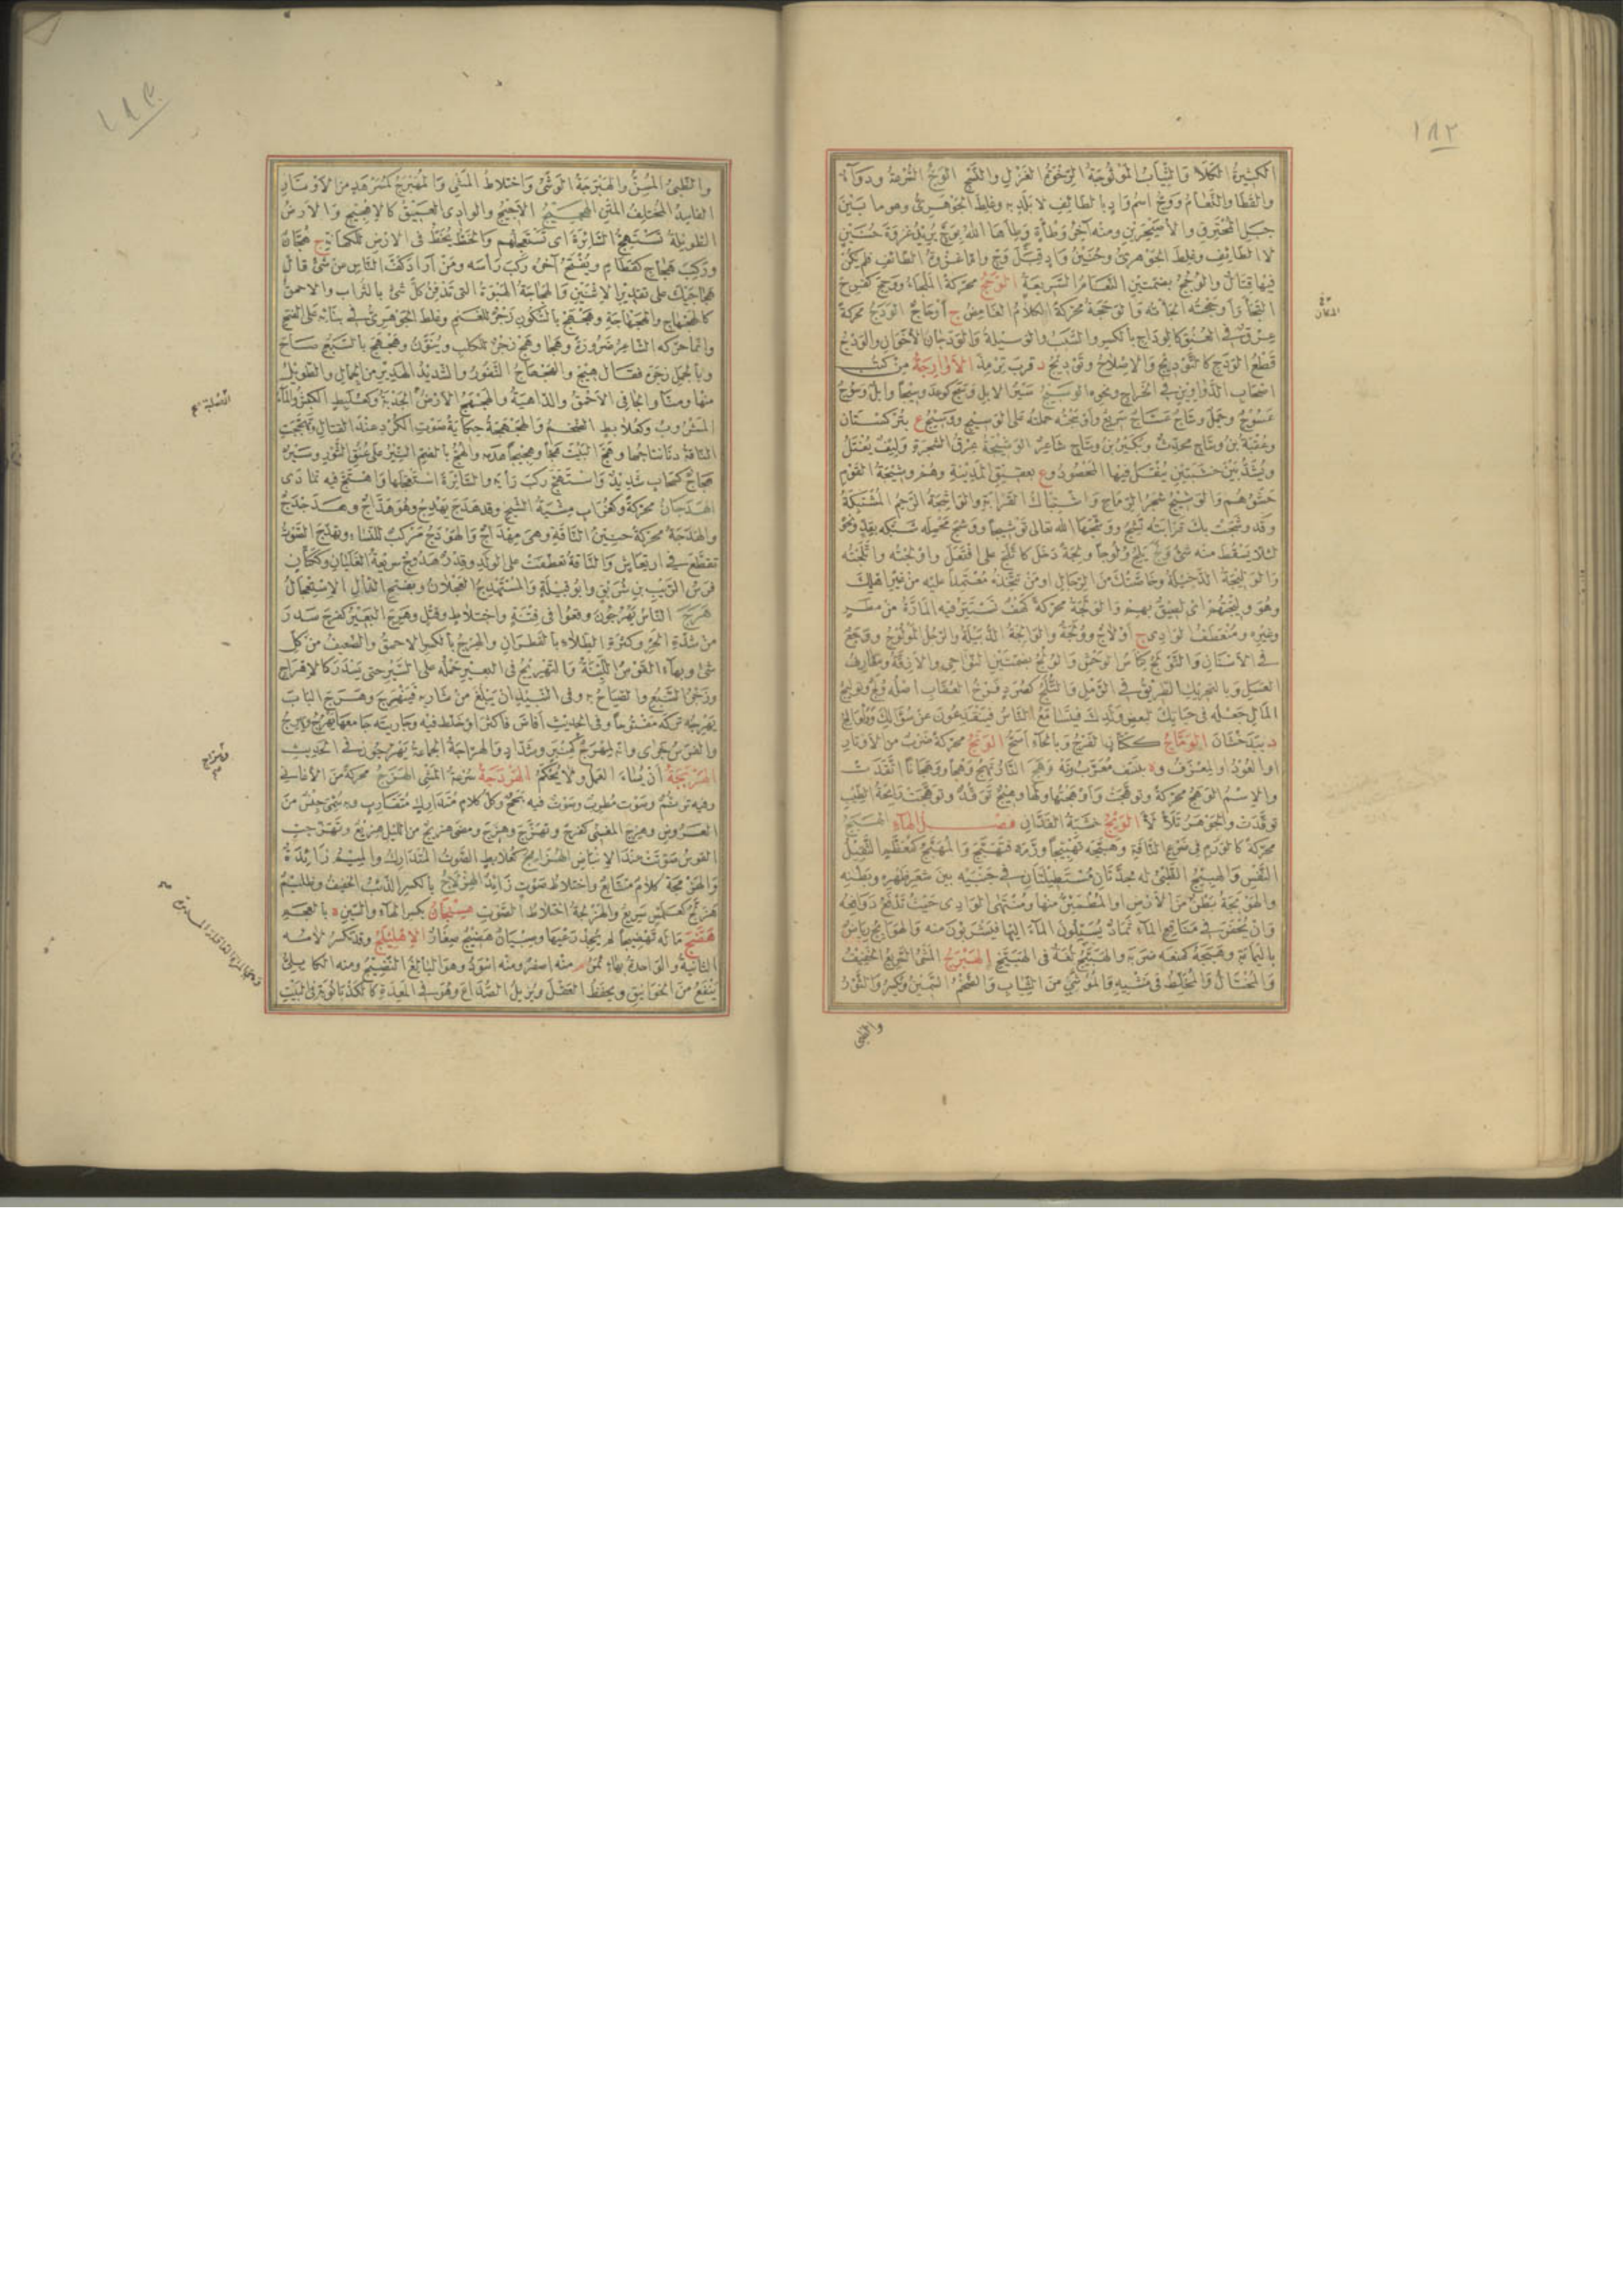 ١٨٢
الكثيرة الكلأ والثياب الموثوجة الرخوة الغزل والنسج الوج السرعة ودواء
والقطا والنعام ووج اسم واد بالطائف لا بلد به وغلط الجوهري وهو ما بين
جبل المحترق والأصيحرين ومنه آخر وطأة وطأها الله بوج يريد غزوة حنين
لا الطائف وغلط الجوهري وحنين واد قبل وج واما غزوة الطائف فلم يكن
فيها قتال والوجج بضمتين النعام السريعة الوحج محركة الملجأ ووحج كفرح
التجأ وأوحجته الجأته والوحجة محركة الكلام الغامض ج أوحاج الودج محركة
عرق في العنق كالوداج بالكسر والسبب والوسيلة والودجان الأخوان والودج
قطع الودج كالتوديج والاصلاح وتوديج د قرب ترمذ الأوارجة من كتب
اصحاب الدواوين في الخراج ونحوه الوسيج سير الابل وسج كوعد وسيجا وابل وسوج
عسوج وجمل وساج عساج سريع وأوسجته حملته على الوسيج ووسيج ع بتركستان
وعقبة بن وساج محدث وبكير بن وساج شاعر الوشيجة عرق الشجرة وليف يفتل
ويشد بين خشبتين ينقل فيها المحصود وع بعقيق المدينة وهم وشيجة القوم
حشوهم والوشيج شجر الرماح واشتباك القرابة والواشجة الرحم المشتبكة
وقد وشجت بك قرابته تشج ووشجها الله تعالى توشيجا ووشج محمله شبكه بقد ونحوه
لئلا يسقط منه شئ ولج يلج ولوجا ولجة دخل كاتلج على افتعل واولجته واتلجته
والوليجة الدخيلة وخاصتك من الرجال او من تتخذه معتمدا عليه من غير اهلك
وهو وليجتهم اى لصيق بهم والولجة محركة كهف تستتر فيه المارة من مطر
وغيره ومنعطف الوادى ج أولاج وولجة والوالجة الدبيلة والرجل المولوج ووجع
في الانسان والتولج كناس الوحش والولج بضمتين النواحى والازقة ومغارف
العسل وبالتحريك الطريق في الرمل والتلج كصرد فرخ العقاب اصله ولج وتوليج
المال جعله في حياتك لبعض ولدك فيتسامع الناس فينقدعون عن سؤالك وولوالج
د ببذخشان الوماج ككتان الفرج وبالحاء اصح الونج محركة ضرب من الأوتار
او العود او المعزف وة بنسف معرب ونه وهج النار تهج وهجا ووهجانا اتقدت
والاسم الوهج محركة وتوهجت وأوهجتها ولها وهيج توقد وتوهجت رائحة الطيب
توقدت والجوهر تلألأ الويج خشبة الفدان فصل الهاء الهبج
محركة كالورم في ضرع الناقة وهبجه تهبيجا ورمه فتهبج والمهبج كمعظم الثقيل
النفس والهبيج الظبى له جدتان مستطيلتان في جنبيه بين شعر ظهره وبطنه
والهوبجة بطن من الأرض او المطمئن منها ومنتهى الوادى حيث تدفع دوافعه
وان يحفر في مناقع الماء ثماد يسيلون الماء اليها فيشربون منه والهوابج رياض
باليمامة وهبجه كمنعه ضربه والهبيج لغة فى الهبيخ الهبرج المشى السريع الخفيف
والمختال والمخلط فى مشيه والموشى من الثياب والضخم السمين ويكسر والثور
والظبى
١٨٣
والظبى المسن والهبرجة الوشى واختلاط المشى والمهبرج كمسرهد من الاوتار
الفاسد المختلف المتن الهجيج الاجيج والوادى العميق كالاهجيج والارض
الطويلة تستهج السائرة اى تستعجلهم والخط يخط فى الارض للكهانة ج هجان
وركب هجاج كقطام ويفتح آخره ركب رأسه ومن اراد كف الناس من شئ قال
هجاجيك على تقدير الاثنين والهجاجة الهبوة التى تدفن كل شئ بالتراب والاحمق
كالهجهاج والهجهاجة وهجهج بالسكون زجر للغنم وغلط الجوهري في بنائه على الفتح
وانما حركه الشاعر ضرورة وهجا وهج زجر للكلب وينون وهجهج بالسبع صاح
وبالجمل زجره فقال هيج والهجهاج النفور والشديد الهدير من الجمال والطويل
منها ومنا والجافى الاحمق والداهية والهجهج الارض الجدبة وكعلبط الكبش والماء
المشروب وكعلابط الضخم والهجهجة حكاية صوت الكرد عند القتال وتهجهجت
الناقة دنا نتاجها وهج البيت هجا وهجيجا هدمه والهج بالضم النير على عنق الثور وسير
هجاج كسحاب شديد واستهج ركب رأيه والسائرة استعجلها واهتج فيه تمادى
الهدجان محركة وكغراب مشية الشيخ وقد هدج يهدج وهو هداج وهدجدج
والهدجة محركة حنين الناقة وهى مهداج والهودج مركب للنساء وتهدج الصوت
تقطع في ارتعاش والناقة تعطفت على الولد وقدر هدوج سريعة الغليان وككتان
فرس الريب بن شريق وابو قبيلة والمستهدج العجلان وبفتح الدال الاستعجال
هرج الناس يهرجون وقعوا فى فتنة واختلاط وقتل وهرج البعير كفرح سدر
من شدة الحر وكثرة الطلاء بالقطران والهرج بالكسر الاحمق والضعيف من كل
شئ وبهاء القوس اللينة والتهريج فى البعير حمله على السير حتى يسدر كالاهراج
وزجر السبع والصياح به وفى النبيذ ان يبلغ من شاربه فينهرج وهرج الباب
يهرجه تركه مفتوحا وفى الحديث افاض فاكثر او خلط فيه وجاريته جامعها يهرج ويهرج
والفرس جرى وانه لمهرج كمنبر وشداد والهراجة الجماعة يهرجون في الحديث
الهربجة ان يساء العمل ولا يحكم الهردجة سرعة المشى الهزج محركة من الأغانى
وفيه ترنم وصوت مطرب وصوت فيه بحح وكل كلام متدارك متقارب وبه سمى جنس من
العروض وهزج المغنى كفرح وتهزج وهزج ومضى هزيج من الليل هزيع وتهزجت
القوس صوتت عند الانباض الهزامج كعلابط الصوت المتدارك والميم زائدة
والهزمجة كلام متتابع واختلاط صوت زايد الهزلاج بالكسر الذئب الخفيف وظليم
هزلج كعملس سريع والهزلجة اختلاط الصوت هسنجان بكسر الهاء والسين ة بالعجم
هضج ماله تهضيجا لم يجد رعيها وصبيان هضيج صغار الاهليلج وقد تكسر لامه
الثانية والواحدة بهاء ثمر م منه اصفر ومنه اسود وهو البالغ النضيج ومنه الكابلى
ينفع من الخوانيق ويحفظ العقل ويزيل الصداع وهو في المعدة كالكذبانوة فى البيت